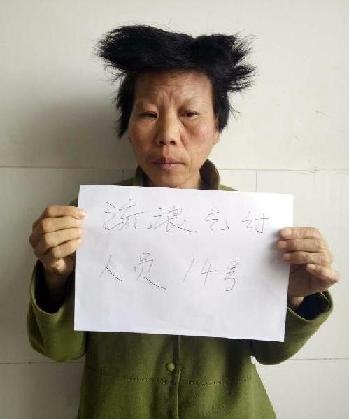 流浪乞讨
人员 14号